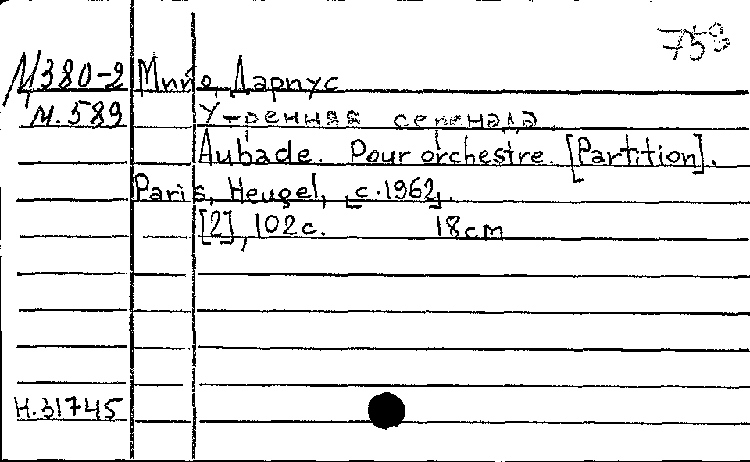 758
М380-2 Мийо, Дариус
М.589 Утренняя серенада.
Aubade. Pour orchestre. [Partition].
Paris, Heugel, [c.1962].
[2], 102c. 18cm
Н.31745